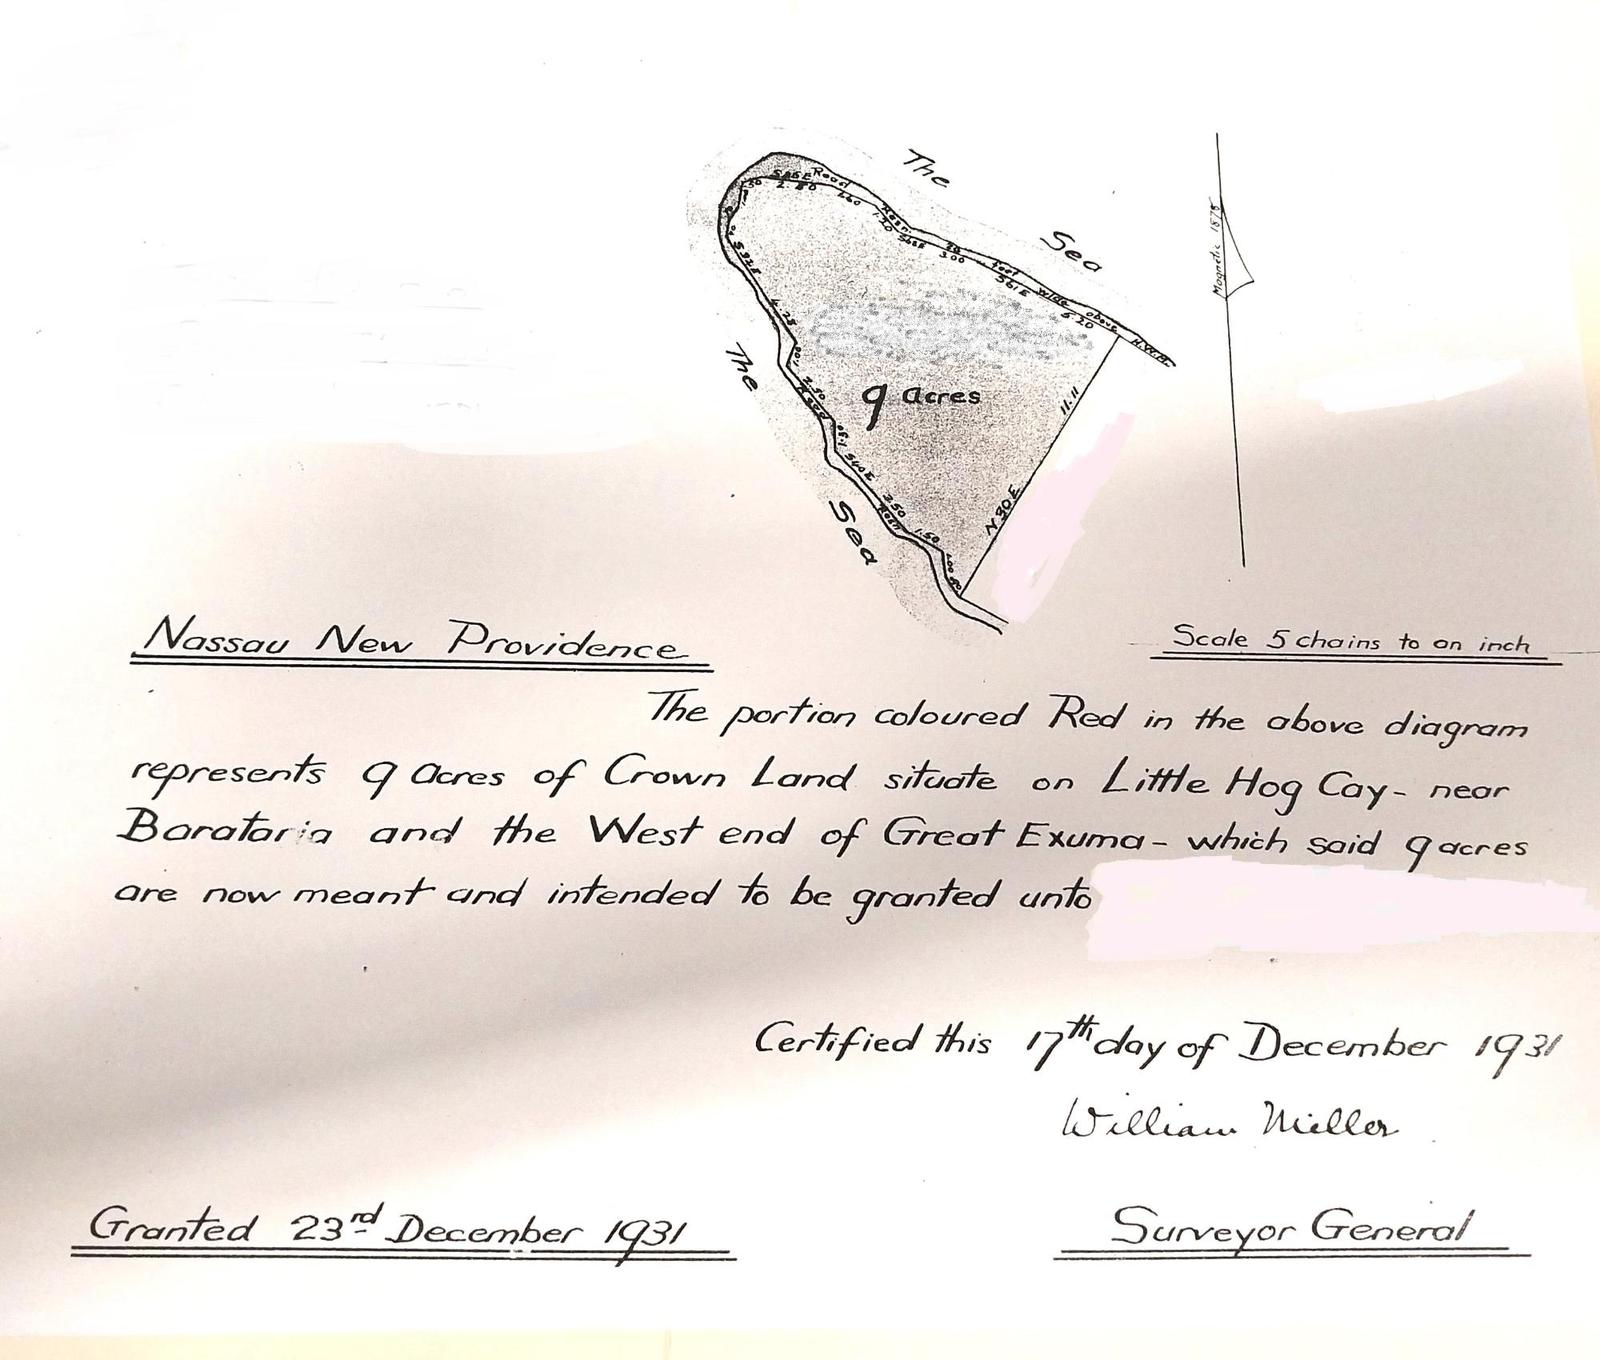 The
Sea
Magnetic 1875
S85E Road
2.80
2.60
1.20
Resn.
S62E
20
3.00
feet
S61E
wide
6.20
above
H.W.M.
.50
S32E
4.25
1.00
The
2.50
Road
9 acres
11.11
1.80
S40E
N 30 E
2.50
Resn
Sea
1.50
1.00
Nassau New Providence
Scale 5 chains to an inch
The portion coloured Red in the above diagram
represents 9 acres of Crown Land situate on Little Hog Cay - near
Barataria and the West end of Great Exuma - which said 9 acres
are now meant and intended to be granted unto
Certified this 17th day of December 1931
William Miller
Granted 23rd December 1931
Surveyor General